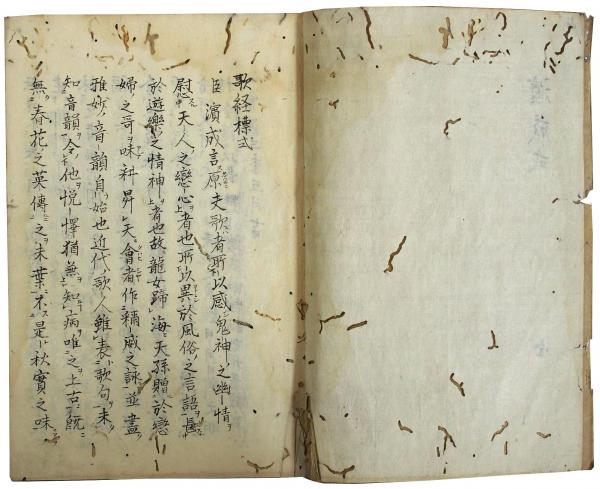 歌経標式
臣濱成言原夫歌者所以感鬼神之幽情
慰天人之戀心者也所以異於風俗之言語長
於遊樂之情神者也故龍女歸海天孫贈於戀
婦之哥味耜昇天會者作稱威之詠並盡
雅妙音韻自始也近代歌人雖表歌句未
知音韻令他悦懌猶無知病唯之上古既
無春花之英傳之末葉不是秋實之味